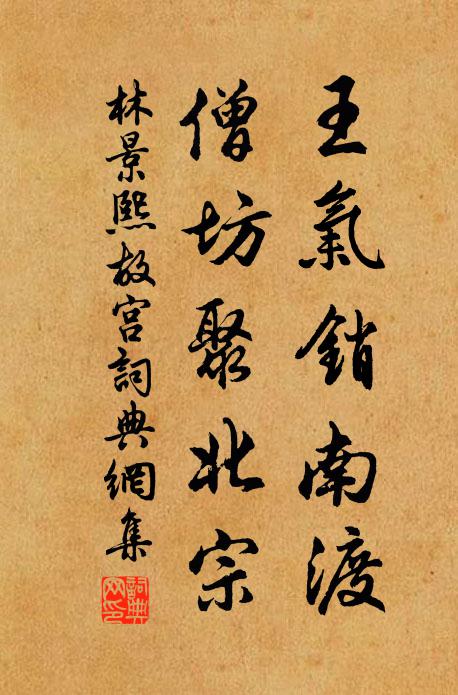 王氣銷南渡
僧坊聚北宗
林景熙故宮詞典網集
詞典網印